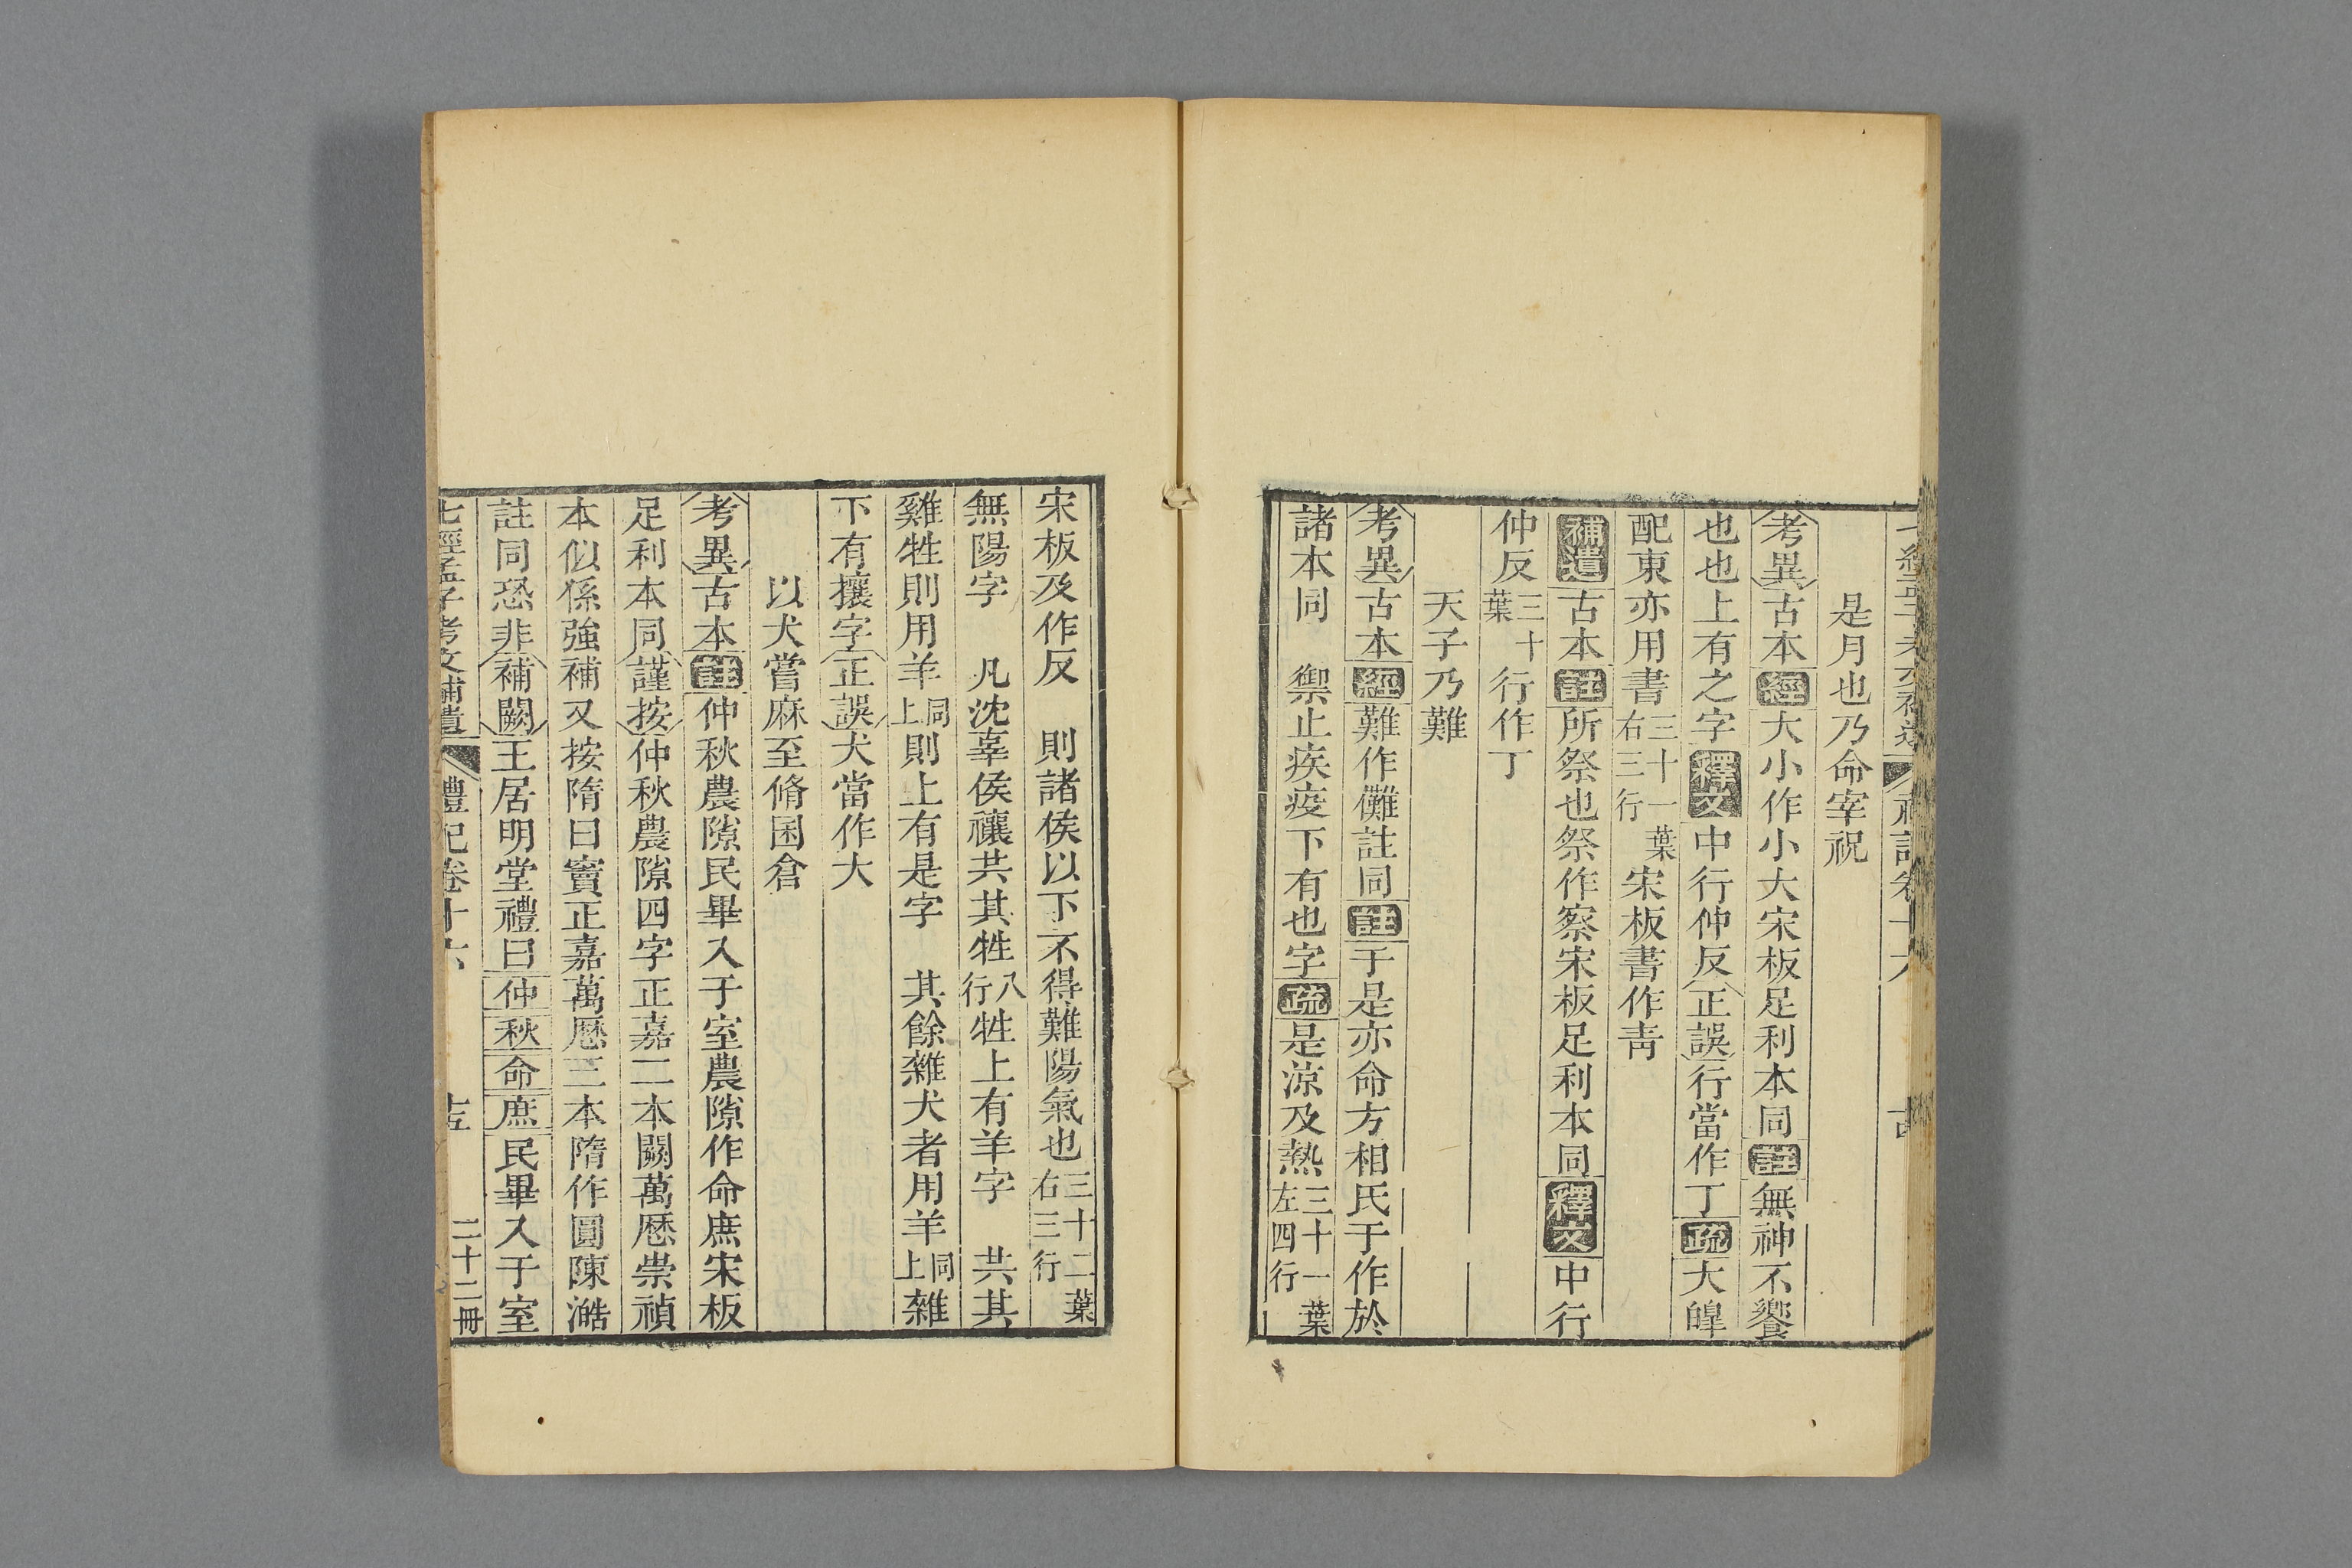 是月也乃命宰祝
考異古本經大小作小大宋板足利本同註無神不饗
也也上有之字釋文中行仲反正誤行當作丁疏大皥
配東亦用書三十一葉右三行宋板書作靑
補遺古本註所祭也祭作察宋板足利本同釋文中行
仲反三十葉行作丁
天子乃難
考異古本經難作儺註同註于是亦命方相氏于作於
諸本同 禦止疾疫下有也字疏是涼及熱三十一葉左四行
宋板及作反 則諸侯以下不得難陽氣也三十二葉右三行
無陽字 凡沈辜侯禳共其牲八行牲上有羊字 共其
雞牲則用羊同上則上有是字 其餘雜犬者用羊同上雜
下有攘字正誤犬當作大
以犬嘗麻至脩囷倉
考異古本註仲秋農隙民畢入于室農隙作命庶宋板
足利本同謹按仲秋農隙四字正嘉二本闕萬曆崇禎
本似係強補又按隋曰竇正嘉萬曆三本隋作圓陳澔
註同恐非補闕王居明堂禮曰仲秋命庶民畢入于室
七經孟子考文補遺 禮記卷十六 十五 二十二冊